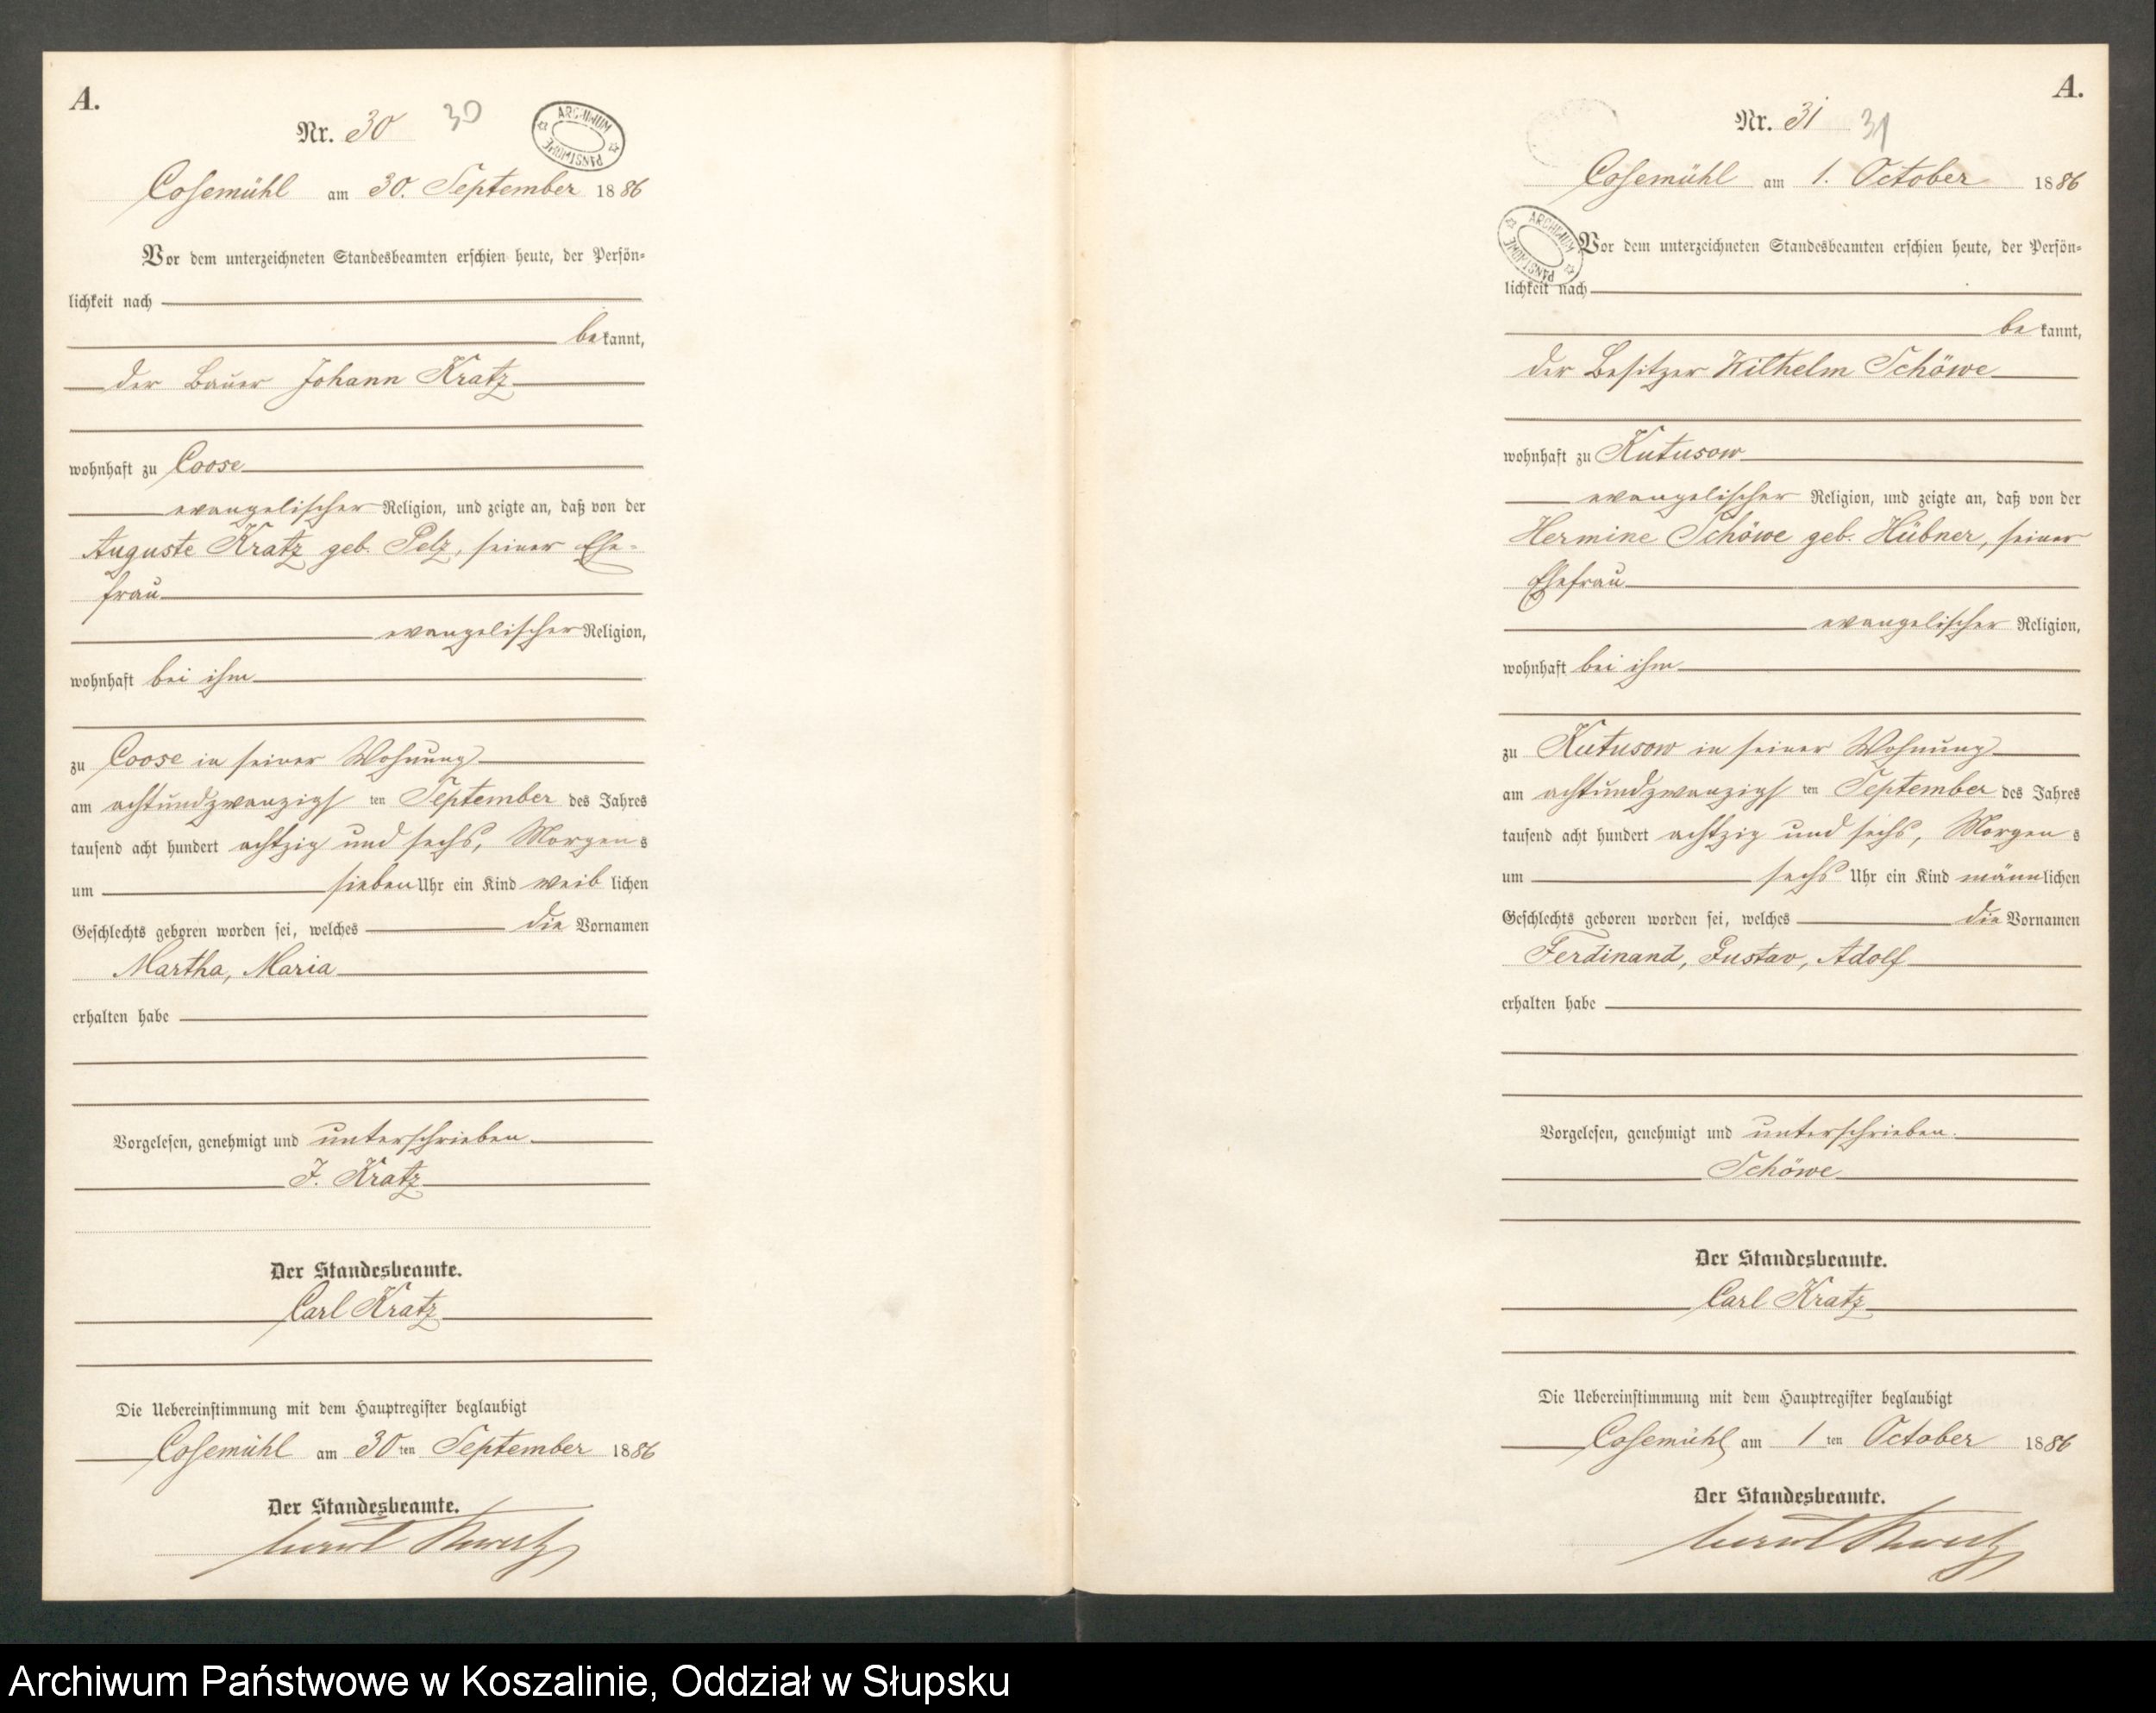 A.
Nr. 30 30
ARCHIWUM PAŃSTWOWE
Cosemühl am 30. September 1886
Vor dem unterzeichneten Standesbeamten erschien heute, der Persön-
lichkeit nach
bekannt,
der Bauer Johann Kratz
wohnhaft zu Coose
evangelischer Religion, und zeigte an, daß von der
Auguste Kratz geb. Pelz, seiner Ehe-
frau
evangelischer Religion,
wohnhaft bei ihm
zu Coose in seiner Wohnung
am achtundzwanzigsten September des Jahres
tausend acht hundert achtzig und sechs, Morgens
um sieben Uhr ein Kind weiblichen
Geschlechts geboren worden sei, welches die Vornamen
Martha, Maria
erhalten habe
Vorgelesen, genehmigt und unterschrieben.
J. Kratz
Der Standesbeamte.
Carl Kratz
Die Uebereinstimmung mit dem Hauptregister beglaubigt
Cosemühl am 30ten September 1886
Der Standesbeamte.
Carl Kratz
A.
Nr. 31 31
Cosemühl am 1. October 1886
ARCHIWUM PAŃSTWOWE
Vor dem unterzeichneten Standesbeamten erschien heute, der Persön-
lichkeit nach
bekannt,
der Besitzer Wilhelm Schöwe
wohnhaft zu Kutusow
evangelischer Religion, und zeigte an, daß von der
Hermine Schöwe geb. Hübner, seiner
Ehefrau
evangelischer Religion,
wohnhaft bei ihm
zu Kutusow in seiner Wohnung
am achtundzwanzigsten September des Jahres
tausend acht hundert achtzig und sechs, Morgens
um sechs Uhr ein Kind männlichen
Geschlechts geboren worden sei, welches die Vornamen
Ferdinand, Gustav, Adolf
erhalten habe
Vorgelesen, genehmigt und unterschrieben.
Schöwe
Der Standesbeamte.
Carl Kratz
Die Uebereinstimmung mit dem Hauptregister beglaubigt
Cosemühl am 1ten October 1886
Der Standesbeamte.
Carl Kratz
Archiwum Państwowe w Koszalinie, Oddział w Słupsku